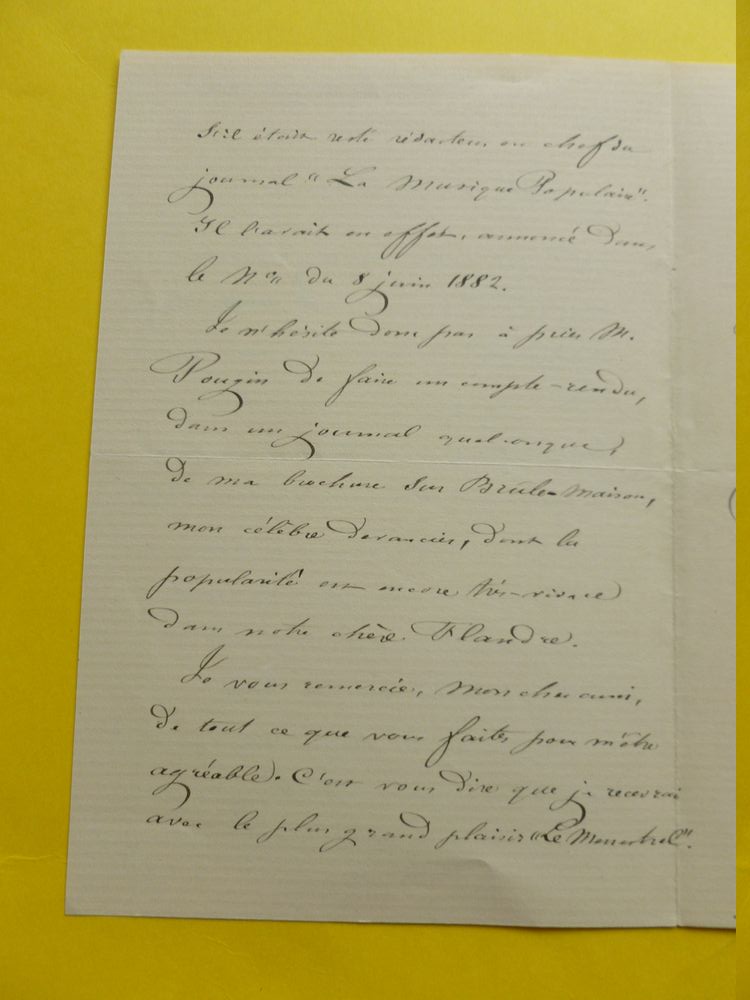 s'il était resté rédacteur en chef du
journal "La Musique Populaire".
Il l'avait en effet, annoncé dans
le N° du 8 juin 1882.
Je n'hésite donc pas à prier M.
Pougin de faire un compte-rendu,
dans un journal quelconque,
de ma brochure sur Brûle-Maison,
mon célèbre devancier, dont la
popularité est encore très-vivace
dans notre chère Flandre.
Je vous remercie, mon cher ami,
de tout ce que vous faites pour m'être
agréable. C'est vous dire que je recevrai
avec le plus grand plaisir "Le Ménestrel".